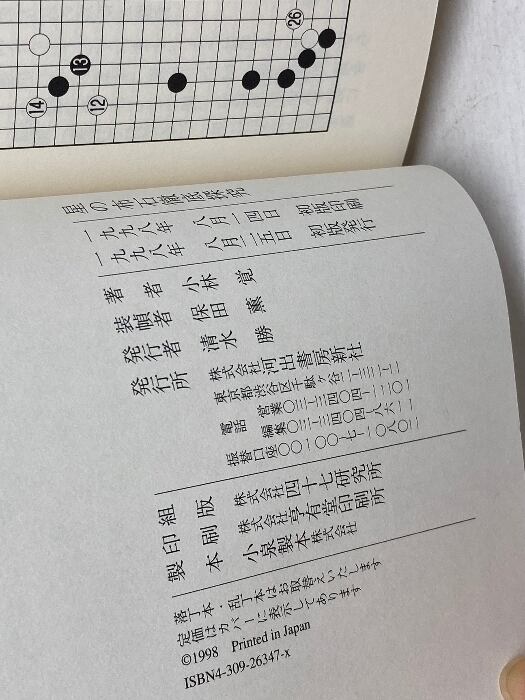 26
13
14
12
星の布石徹底探究
一九九八年 八月一四日 初版印刷
一九九八年 八月二五日 初版発行
著者 小林 覚
装幀者 保田 薫
発行者 清水 勝
発行所 株式会社河出書房新社
東京都渋谷区千駄ヶ谷二-三二-二
電話 営業〇三-三四〇四-一二〇一
編集〇三-三四〇四-八六一一
振替口座〇〇一〇〇-七-一〇八〇二
組版 株式会社四十七研究所
印刷 株式会社亨有堂印刷所
製本 小泉製本株式会社
落丁本・乱丁本はお取替えいたします
定価はカバーに表示してあります
©1998 Printed in Japan
ISBN4-309-26347-x